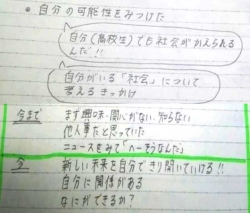 • 自分の可能性をみつけた
自分(高校生)でも社会がかえられる
んだ!!
自分がいる「社会」について
考えるきっかけ
今まで まず興味・関心がない、知らない
他人事だと思っていた
ニュースをみて「へーそうなんだ」
今 新しい未来を自分できり開いていける!!
自分に関係がある
なにができるか?